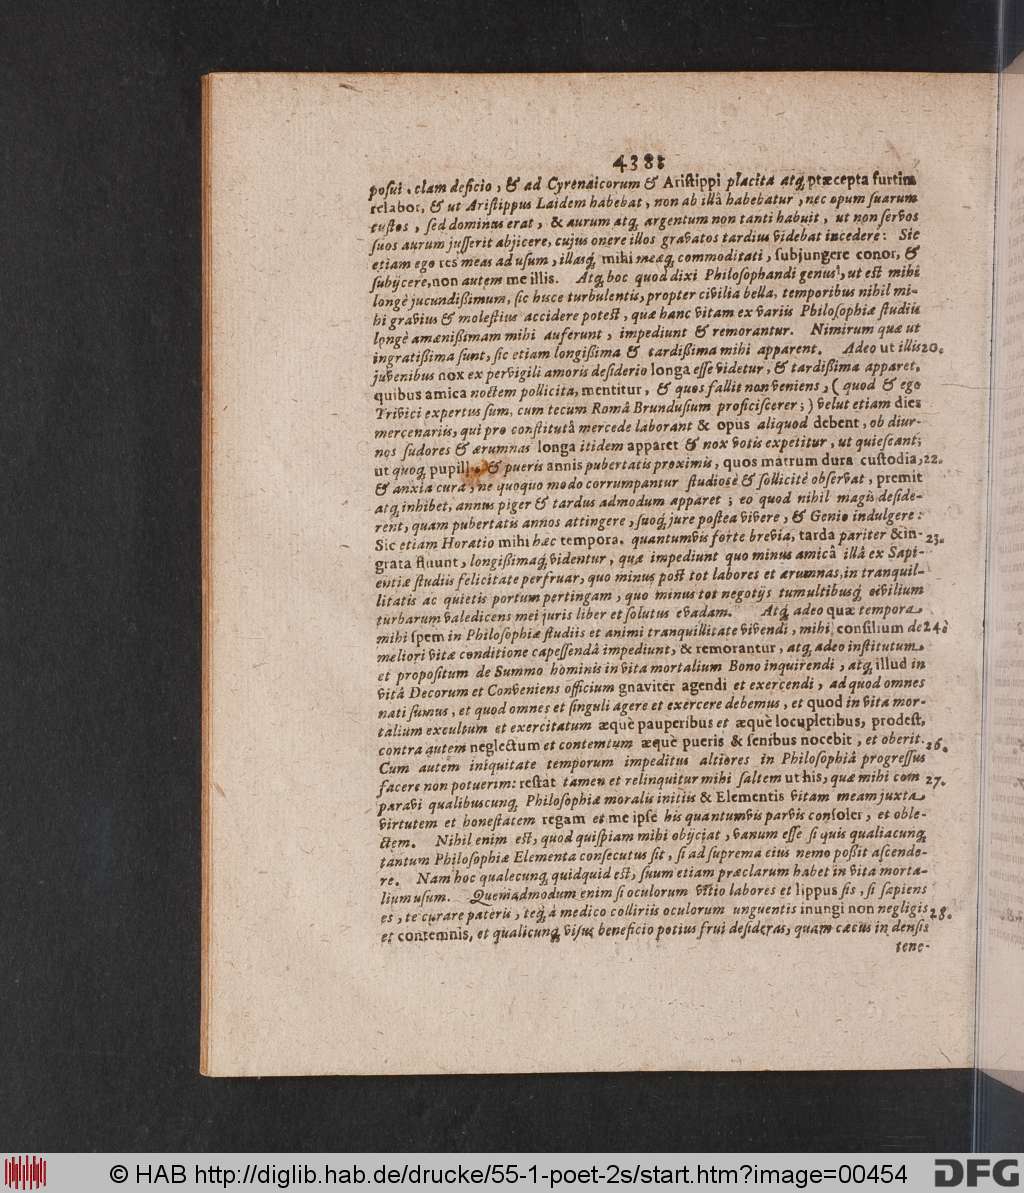 438:
posui, clam deficio, & ad Cyrenaicorum & Aristippi placita atq; præcepta furtim
relabor, & ut Aristippus Laidem habebat, non ab illâ habebatur, nec opum suarum
custos, sed dominus erat, & aurum atq; argentum non tanti habuit, ut non servos
suos aurum jusserit abjicere, cujus onere illos gravatos tardius videbat incedere: Sic
etiam ego res meas ad usum, illasq; mihi meæq; commoditati, subjungere conor, &
subijcere, non autem me illis. Atq; hoc quod dixi Philosophandi genus, ut est mihi
longè jucundißimum, sic hisce turbulentis, propter civilia bella, temporibus nihil mi-
hi gravius & molestius accidere potest, quæ hanc vitam ex variis Philosophiæ studiis
longè amænißimam mihi auferunt, impediunt & remorantur. Nimirum quæ ut
ingratißima sunt, sic etiam longißima & tardißima mihi apparent. Adeo ut illis 20.
juvenibus nox ex pervigili amoris desiderio longa esse videtur, & tardißima apparet,
quibus amica noctem pollicita, mentitur, & quos fallit non veniens, ( quod & ego
Trivici expertus sum, cum tecum Româ Brundusium proficiscerer; ) velut etiam dies
mercenariis, qui pro constitutâ mercede laborant & opus aliquod debent, ob diur-
nos sudores & ærumnas longa itidem apparet & nox votis expetitur, ut quiescant;
ut quoq; pupillis & pueris annis pubertatis proximis, quos matrum dura custodia, 22.
& anxia cura, ne quoquo modo corrumpantur studiosè & sollicitè observat, premit
atq; inhibet, annus piger & tardus admodum apparet; eo quod nihil magis deside-
rent, quam pubertatis annos attingere, suoq; jure postea vivere, & Genio indulgere:
Sic etiam Horatio mihi hæc tempora. quantumvis forte brevia, tarda pariter & in- 23.
grata fluunt, longißimaq; videntur, quæ impediunt quo minus amicâ illâ ex Sapi-
entiæ studiis felicitate perfruar, quo minus post tot labores et ærumnas, in tranquil-
litatis ac quietis portum pertingam, quo minus tot negotijs tumultibusq; civilium
turbarum valedicens mei juris liber et solutus evadam. Atq; adeo quæ tempora
mihi spem in Philosophiæ studiis et animi tranquillitate vivendi, mihi consilium de 24.
meliori vitæ conditione capessendâ impediunt, & remorantur, atq; adeo institutum
et propositum de Summo hominis in vita mortalium Bono inquirendi, atq; illud in
vitâ Decorum et Conveniens officium gnaviter agendi et exercendi, ad quod omnes
nati sumus, et quod omnes et singuli agere et exercere debemus, et quod in vita mor-
talium excultum et exercitatum æquè pauperibus et æquè locupletibus, prodest,
contra autem neglectum et contemtum æquè pueris & senibus nocebit, et oberit. 26.
Cum autem iniquitate temporum impeditus altiores in Philosophiâ progressus
facere non potuerim: restat tamen et relinquitur mihi saltem ut his, quæ mihi com 27.
paravi qualibuscunq; Philosophiæ moralis initiis & Elementis vitam meam juxta
virtutem et honestatem regam et me ipse his quantumvis parvis consoler, et oble-
ctem. Nihil enim est, quod quispiam mihi obijciat, vanum esse si quis qualiacunq;
tantum Philosophiæ Elementa consecutus sit, si ad suprema eius nemo poßit ascende-
re. Nam hoc qualecunq; quidquid est, suum etiam præclarum habet in vita morta-
lium usum. Quemadmodum enim si oculorum vitio labores et lippus sis, si sapiens
es, te curare pateris, teq; à medico colliriis oculorum unguentis inungi non negligis 28.
et contemnis, et qualicunq; visus beneficio potius frui desideras, quam cæcus in densis
tene-
© HAB http://diglib.hab.de/drucke/55-1-poet-2s/start.htm?image=00454
DFG